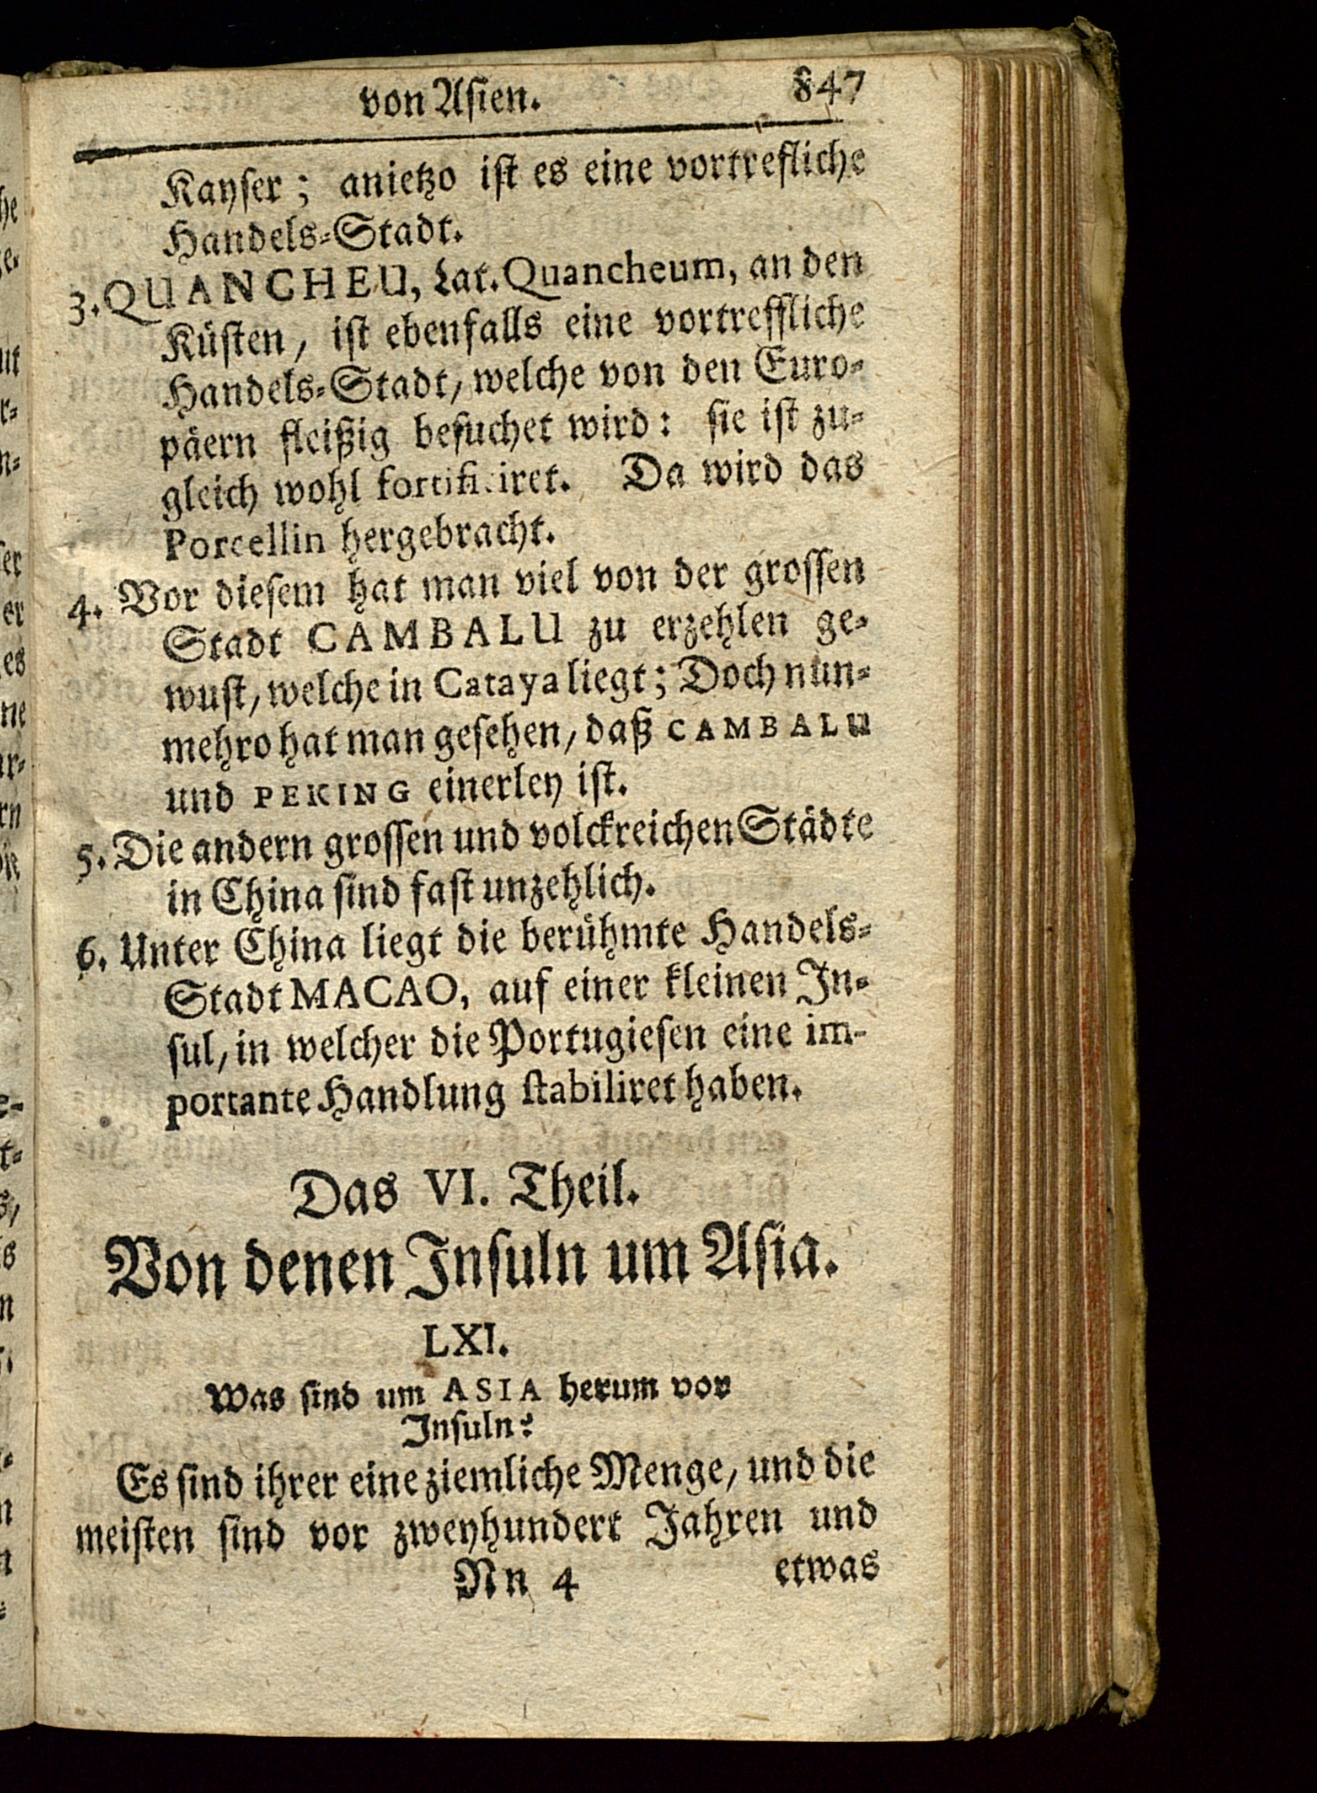 von Asien. 847
Kayser; anietzo ist es eine vortrefliche
Handels-Stadt.
3. QUANCHEU, Lat. Quancheum, an den
Küsten, ist ebenfalls eine vortreffliche
Handels-Stadt, welche von den Euro-
päern fleißig besuchet wird: sie ist zu-
gleich wohl fortificiret. Da wird das
Porcellin hergebracht.
4. Vor diesem hat man viel von der grossen
Stadt CAMBALU zu erzehlen ge-
wust, welche in Cataya liegt; Doch nun-
mehro hat man gesehen, daß CAMBALU
und PEKING einerley ist.
5. Die andern grossen und volckreichen Städte
in China sind fast unzehlich.
6. Unter China liegt die berühmte Handels-
Stadt MACAO, auf einer kleinen In-
sul, in welcher die Portugiesen eine im-
portante Handlung stabiliret haben.
Das VI. Theil.
Von denen Insuln um Asia.
LXI.
Was sind um ASIA herum vor
Insuln?
Es sind ihrer eine ziemliche Menge, und die
meisten sind vor zweyhundert Jahren und
Nn 4 etwas